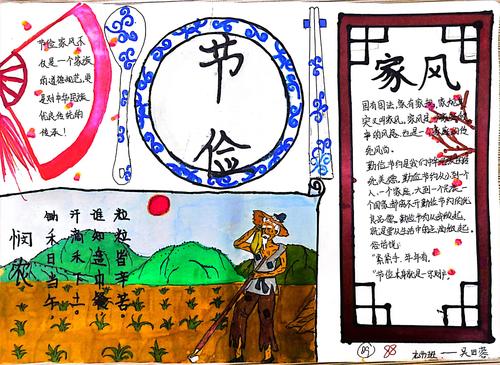 节俭家风不
仅是一个家族
的道德规范,更
是对中华民族
优良传统的
传承!
节
俭
悯农
锄禾日当午
汗滴禾下土。
谁知盘中餐,
粒粒皆辛苦。
家风
国有国法,家有家规,家规其
实又叫家风。家风是一个家庭
中的风气,也是一个家庭的传
统风尚。
勤俭节约是我们中华民族的传
统美德。勤俭节约从小到一个
人、一个家庭,大到一个民族一
个国家都离不开勤俭节约的优
良品德。勤俭节约从我做起,
就是要从生活中的点滴做起。
俗话说:
"紧紧手,年年有。
"节俭本身就是一宗财产。
88